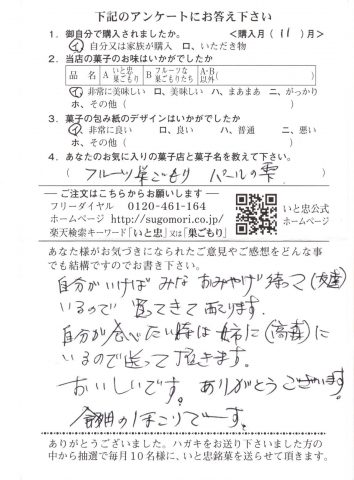 下記のアンケートにお答え下さい
1. 御自分で購入されましたか。 <購入月( 11 )月>
イ、自分又は家族が購入 ロ、いただき物
2. 当店の菓子のお味はいかがでしたか
品 名 A いと忠巣ごもり B フルーツな巣ごもりたち A・B以外( )
イ、非常に美味しい ロ、美味しい ハ、まあまあ ニ、がっかり
ホ、その他( )
3. 菓子の包み紙のデザインはいかがでしたか
イ、非常に良い ロ、良い ハ、普通 ニ、悪い
ホ、その他( )
4. あなたのお気に入りの菓子店と菓子名を教えて下さい。
( フルーツ巣ごもり パールの雫 )
―ご注文はこちらからお願いします―
フリーダイヤル 0120-461-164
ホームページ http://sugomori.co.jp/
楽天検索キーワード「いと忠」又は「巣ごもり」
いと忠公式
ホームページ
あなた様がお気づきになられたご意見やご感想をどんな事
でも結構ですのでお書き下さい。
自分がいけば みな おみやげ 待って(友達)
いるので 買ってきて 配ります.
自分が食べたい時は 姉に(高森)に
いるので送って頂きます.
おいしいです。ありがとうございます.
のほこりでーす.
ありがとうございました。ハガキをお送り下さいました方の
中から抽選で毎月10名様に、いと忠銘菓を送らせて頂きます。